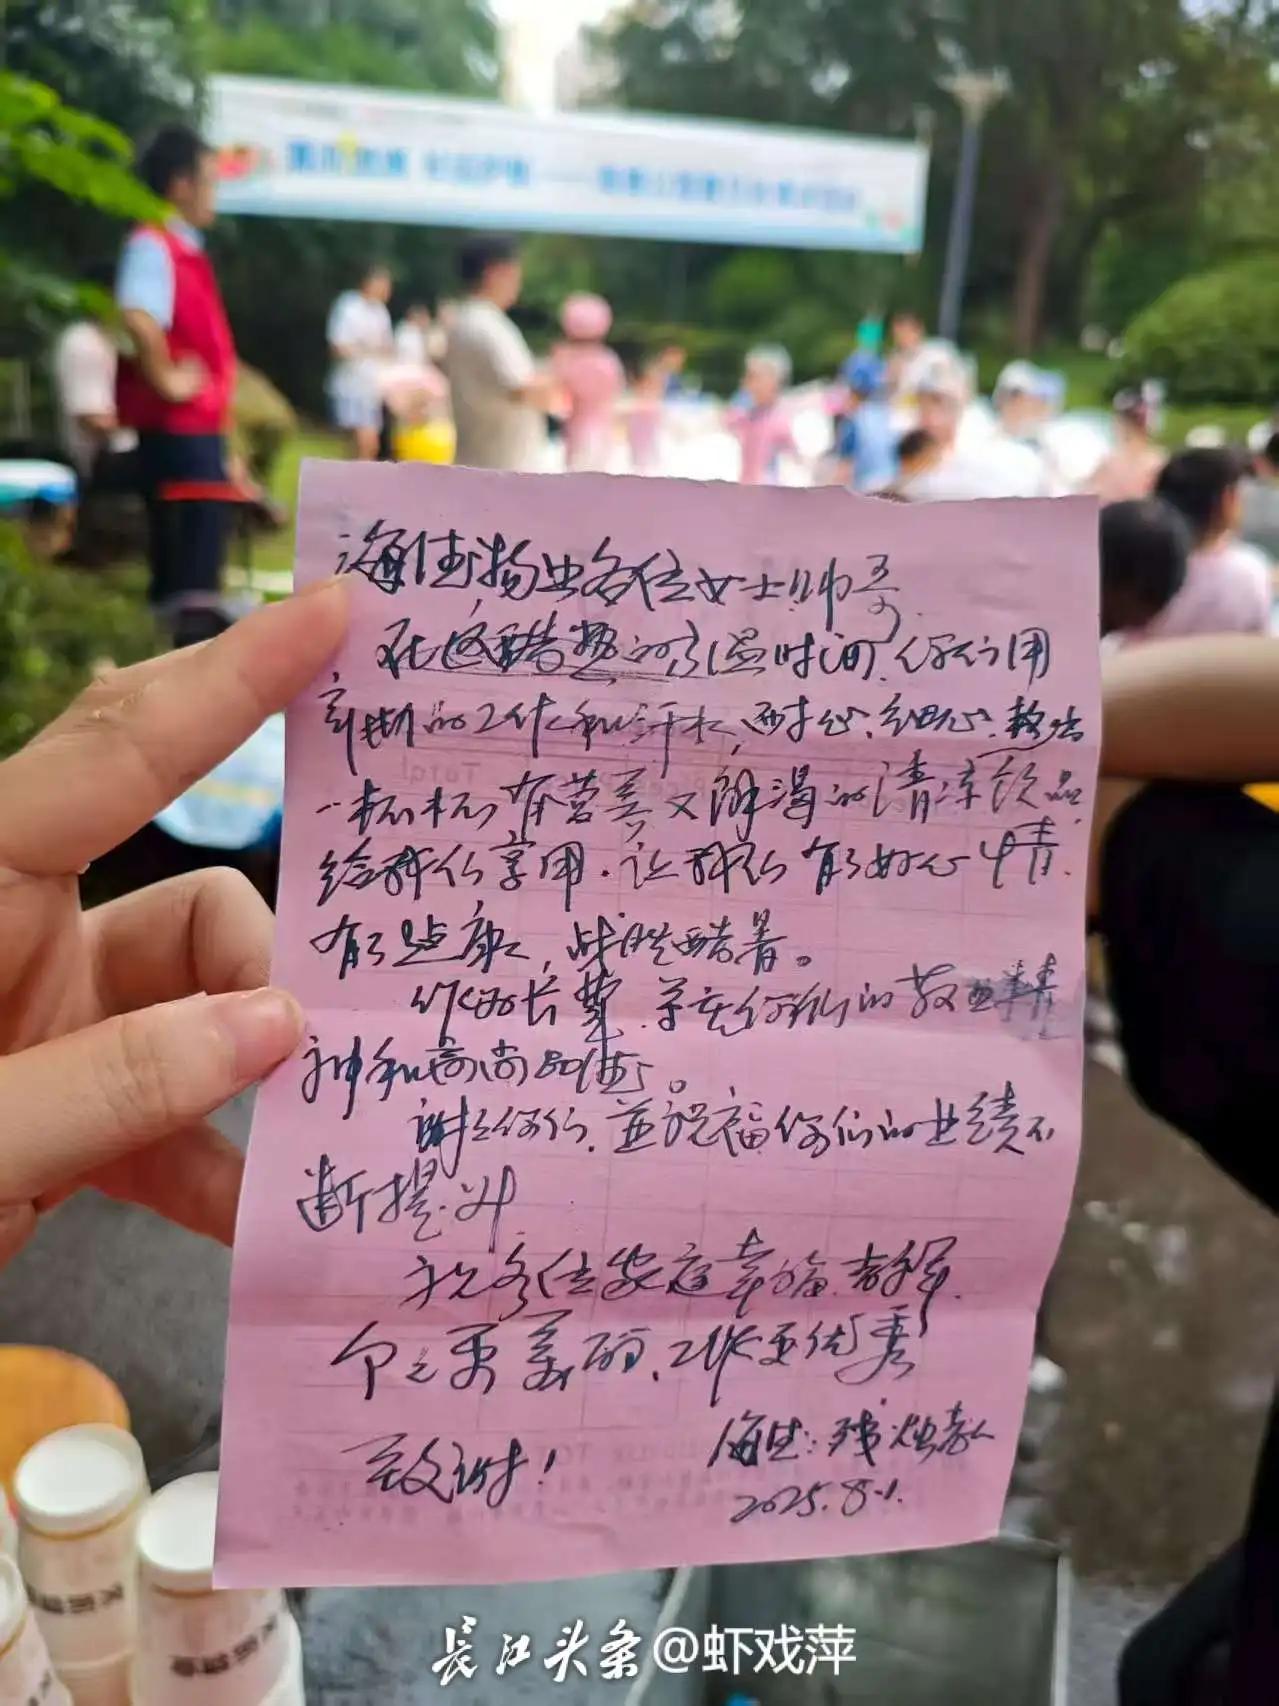 海佳物业各位女士帅哥
在这酷热的高温时间,你们用
辛勤的工作和汗水,耐心、细心、熬出
一杯杯有营养又解渴的清凉饮品.
给我们享用.让我们有了好心情.
有了健康,战胜酷暑。
你们长费辛苦你们的敬业精
神和高尚品德。
谢谢你们.並祝福你们的业绩不
断提升
祝各位家庭幸福吉祥.
个个更美丽.工作更优秀
致谢!
2025.8.1.
长江头条@虾戏萍